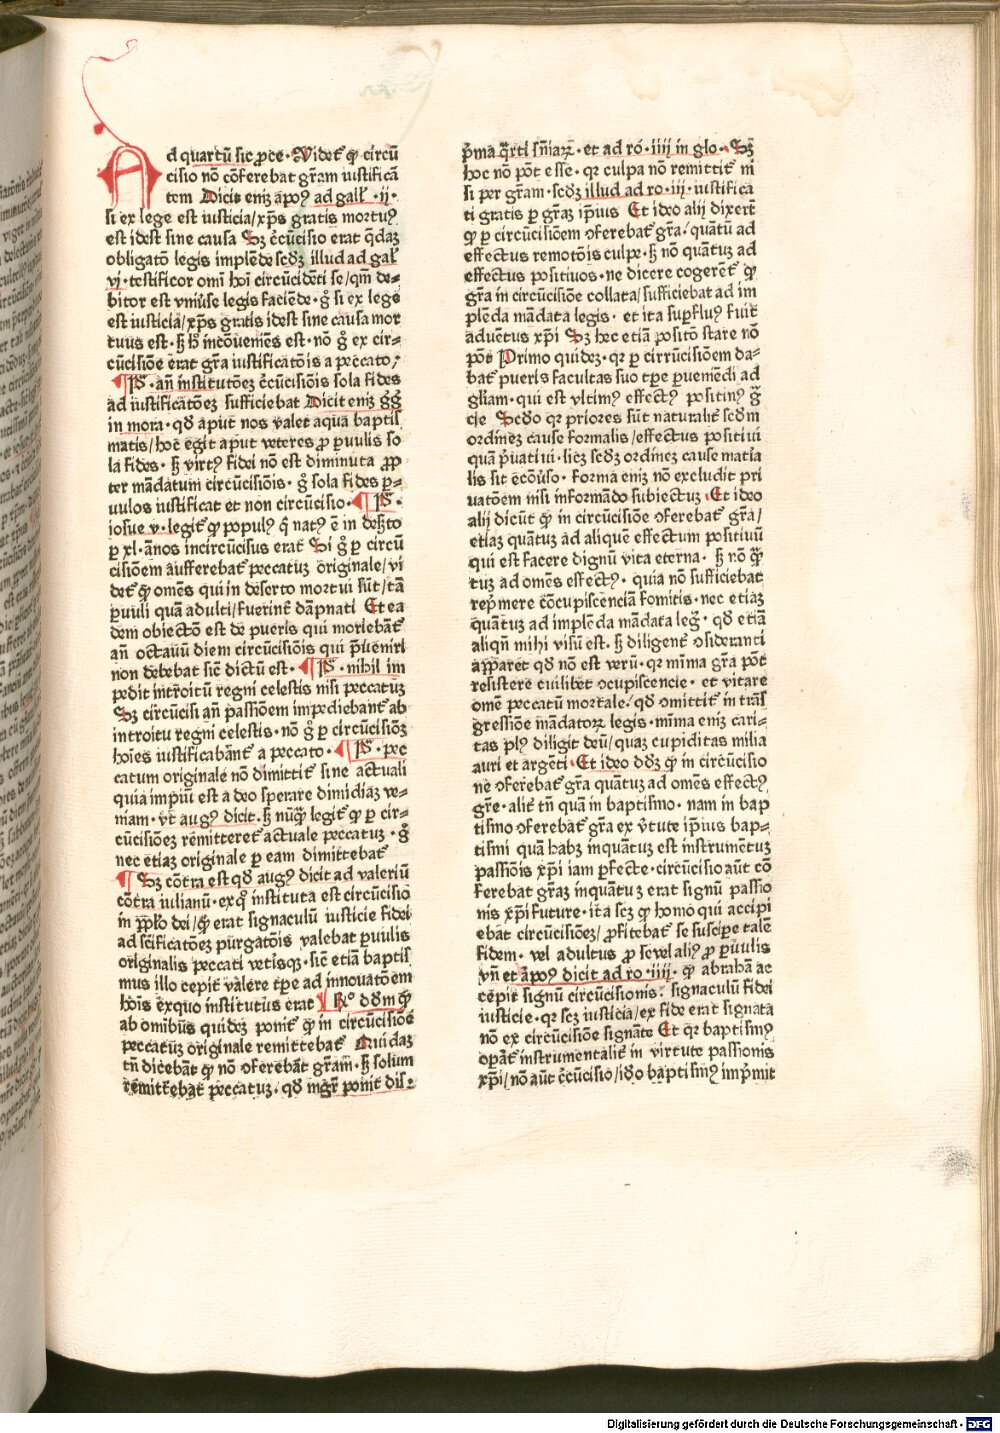 Ad quartū sic ꝓce. Videt̄ ꝙ circū
cisio nō cōferebat gr̄am iustificā
tem Dicit eniꝫ apoꝰ ad gall̄ .ij.
si ex lege est iusticia/xp̄s gratis mortuꝰ
est idest sine causa Sꝫ c̄cūcisio erat q̄daꝫ
obligatō legis implēde scd̄ꝫ illud ad gal̄
vj. testificor omī hoī circūcidēti se/qm̄ de⸗
bitor est vniu̓se legis faciēde. gͦ si ex lege
est iusticia/xp̄s gratis idest sine causa mor
tuus est. ꝫ hͦ incōueniēs est. nō gͦ ex cir⸗
cūcisiōe erat gr̄a iustificatōis a peccato/
¶ Pͫ. an̄ institutōeꝫ c̄cūcisiōis sola fides
ad iustificatōeꝫ sufficiebat Dicit eniꝫ gͦgͦ
in mora. qd̄ aput nos valet aqua baptis
matis/hoc̄ egit aput veteres ꝓ puulis so
la fides. ꝫ virtꝰ fidei nō est diminuta ꝓp
ter mādatum circūcisiōis. gͦ sola fides p⸗
uulos iustificat et non circūcisio. ¶ Pͫ.
iosue v. legit̄ ꝙ populꝰ q̄ natꝰ ē in deꝫto
ꝑ xl. ānos incircūcisus erat Si gͦ ꝑ circū
cisiōem aufferebat̄ peccatuꝫ originale/vi
det̄ ꝙ omēs qui in deserto mortui sūt/tā
puuli quā adulti/fuerint̄ dāpnati Et ea
dem obiectō est de pueris qui moriebāt̄
an̄ octauū diem circūcisiōis qui p̄ueniri
non debebat sic̄ dictū est. ¶ Pͫ. nihil im
pedit introitū regni celestis nisi peccatūꝫ
Sꝫ circūcisi an̄ passiōem impediebant̄ ab
introitu regni celestis. nō gͦ ꝑ circūcisiōꝫ
hoīes iustificabant̄ a peccato. ¶ Pͫ. pec
catum originale nō dimittit̄ sine actuali
quia impiū est a deo sperare dimidiaꝫ ve⸗
niam. vt augꝰ dicit. ꝫ nūꝗ legit̄ ꝙ ꝑ cir⸗
cūcisiōeꝫ remitteret̄ actuale peccatuꝫ. gͦ
nec etiaꝫ originale ꝑ eam dimittebat̄
¶ Sꝫ cōtra est qd̄ augꝰ dicit ad valeriū
cōtra iulianū. ex qͦ instituta est circūcisio
in pp̄lo dei/q̄ erat signaculū iusticie fidei
ad scīficatōeꝫ purgatōis valebat puulis
originalis peccati vetisqꝫ. sic̄ etiā baptis
mus illo cepit valere tp̄e ad innouatōem
hoīs exquo institutus erat ¶ Rͦ dd̄m ꝙ
ab omībus quideꝫ ponit̄ ꝙ in circūcisiōe
peccatūꝫ originale remittebat̄ Quidaꝫ
tn̄ dicebāt ꝙ nō ↄferebat̄ gr̄am. ꝫ solum
remittebat̄ peccatuꝫ. qd̄ mgr̄ ponit dis⸗
p̄ma q̄rti sn̄iaꝝ. et ad ro. iiij in glo. Sꝫ
hoc nō pōt esse. qꝛ culpa nō remittit̄ ni
si per gr̄am. scd̄ꝫ illud ad ro. iij. iustifica
ti gratis p gr̄aꝫ ip̄ius Et ideo alij dixerūt
ꝙ ꝑ circūcisiōem ↄferebat̄ gr̄a/quātū ad
effectus remotōis culpe. ꝫ nō quātuꝫ ad
effectus positiuos. ne dicere cogerēt̄ ꝙ
gr̄a in circūcisiōe collata/sufficiebat ad im
plēda mādata legis. et ita supfluꝰ fuit
aduētus xp̄i Sꝫ hec etiā positō stare nō
pōt Primo quideꝫ. qꝛ ꝑ cirrūcisiōem da⸗
bat̄ pueris facultas suo tp̄e pueniēdi ad
gliam. qui est vltimꝰ effectꝰ positiuꝰ gr̄
cie Scdo qꝛ priores sūt naturalit̄ scd̄m
ordineꝫ cause formalis/effectus positiui
quā p̄uatiui. liceꝫ scd̄ꝫ ordineꝫ cause matīa
lis sit ecōu̓so. forma eniꝫ nō excludit pri
uatōem nisi informādo subiectuꝫ Et ideo
alij dicūt ꝙ in circūcisiōe ↄferebat̄ gr̄a/
etiaꝫ quātuꝫ ad aliquē effectum positiuū
qui est facere dignū vita eterna. ꝫ nō q̄ꝫ
tuꝫ ad omēs effectꝰ. quia nō sufficiebat
rep̄mere cōcupiscenciā fomitis. nec etiaꝫ
quātuꝫ ad implēda mādata legꝭ. qd̄ etiā
aliqn̄ mihi visū est. ꝫ diligent̄ ↄsideranti
apparet qd̄ nō est verū. qꝛ mīma gr̄a pōt
resistere cuilibet ↄcupiscencie. et vitare
omē peccatū mortale. qd̄ ↄmittit̄ in trās
gressiōe mādatoꝝ legis. mīma eniꝫ cari⸗
tas plꝰ diligit deū/quaꝫ cupiditas milia
auri et argēti. Et ideo dd̄ꝫ ꝙ in circūcisio
ne ↄferebat̄ gr̄a quātuꝫ ad omēs effectꝰ
gr̄e. alit̄ tn̄ quā in baptismo. nam in bap
tismo ↄferebat̄ gr̄a ex v̓tute ip̄ius bap⸗
tismi quā habꝫ inquātuꝫ est instrumētuꝫ
passiōis xp̄i iam ꝑfecte. circūcisio aūt cō
ferebat gr̄aꝫ inquātuꝫ erat signū passio
nis xp̄i future. ita scꝫ ꝙ homo qui accipi
ebat circūcisiōeꝫ/ꝓfitebat̄ se suscipe talē
fidem. vel adultus ꝓ se vel aliꝰ ꝓ puulis
vn̄ et apoꝰ dicit ad ro. iiij. ꝙ abrahā ac
cepit signū circūcisionis. signaculū fidei
iusticie. qꝛ scꝫ iusticia/ex fide erat signata
nō ex circūcisiōe signāte Et qꝛ baptismꝰ
opat̄ instrumentalit̄ in virtute passionis
xp̄i/nō aūt c̄cūcisio/idͦo baptismꝰ imp̄mit
Digitalisierung gefördert durch die Deutsche Forschungsgemeinschaft - DFG